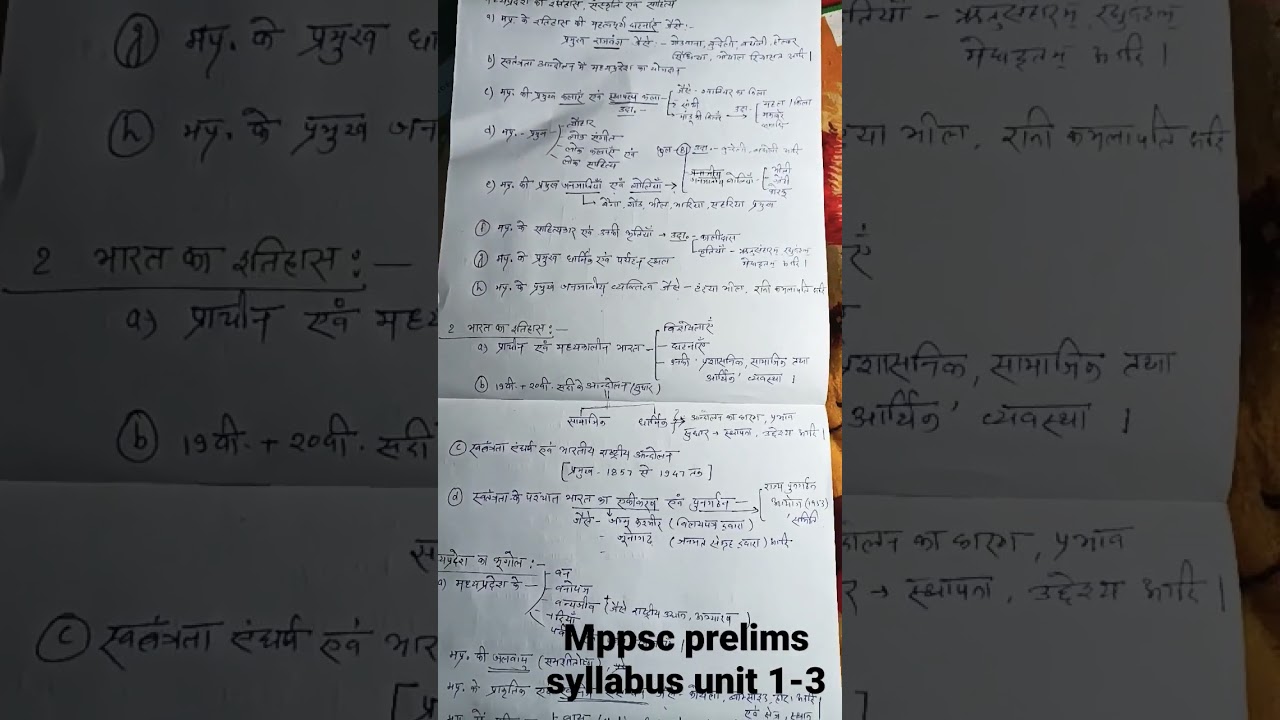 मध्यप्रदेश का इतिहास, संस्कृति एवं साहित्य
a) मप्र. के इतिहास की महत्वपूर्ण घटनाएं जैसे:-
प्रमुख राजवंश जैसे - गोंडवाना, बुंदेली, बघेली, होल्कर
सिंधिया, भोपाल रियासत आदि।
b) स्वतंत्रता आन्दोलन में मध्यप्रदेश का योगदान
c) मप्र. की प्रमुख कलाएं एवं स्थापत्य कला - जैसे - ग्वालियर का किला
उदा. - सांची
उदा -
किला
मकबरे
d) मप्र. - प्रमुख - त्यौहार
लोक संगीत
लोक कलाएं एवं
लोक साहित्य
उदा. - बुंदेली, बघेली आदि
e) मप्र. की प्रमुख जनजातियाँ एवं बोलियाँ → जनजातीय बोलियाँ - भीली
गोंडी
कोरकू
बैगा, गोंड, भील, भारिया, सहरिया प्रमुख
f) मप्र. के साहित्यकार एवं उनकी कृतियाँ → उदा. - कालीदास
कृतियाँ - ऋतुसंहारम् रघुवंशम्
मेघदूतम् आदि।
g) मप्र. के प्रमुख धार्मिक एवं पर्यटन स्थल
h) मप्र. के प्रमुख जनजातीय व्यक्तित्व जैसे - टंट्या भील, रानी कमलापति आदि
2 भारत का इतिहास :-
a) प्राचीन एवं मध्यकालीन भारत - विशेषताएँ
- घटनाएँ
- उनकी 'प्रशासनिक, सामाजिक तथा
आर्थिक' व्यवस्था।
(b) 19वी. + 20वी. सदी के आन्दोलन (सुधार)
सामाजिक धार्मिक → आन्दोलन का कारण, प्रभाव
सुधार → स्थापना, उद्देश्य आदि।
(c) स्वतंत्रता संघर्ष एवं भारतीय राष्ट्रीय आन्दोलन
[प्रमुख - 1857 से 1947 तक]
(d) स्वतंत्रता के पश्चात भारत का एकीकरण एवं पुनर्गठन - राज्य पुनर्गठन
आयोग (1953)
समिति
जैसे - जम्मू कश्मीर (विलयपत्र द्वारा)
- जूनागढ़ (जनमत संग्रह द्वारा) आदि
मध्यप्रदेश का भूगोल :-
a) मध्यप्रदेश के - वन
- वनोपज
- वन्यजीव (जैसे राष्ट्रीय उद्यान, अभ्यारण)
- नदियाँ
Mppsc prelims
syllabus unit 1-3
मप्र. की जलवायु
मप्र. के प्राकृतिक